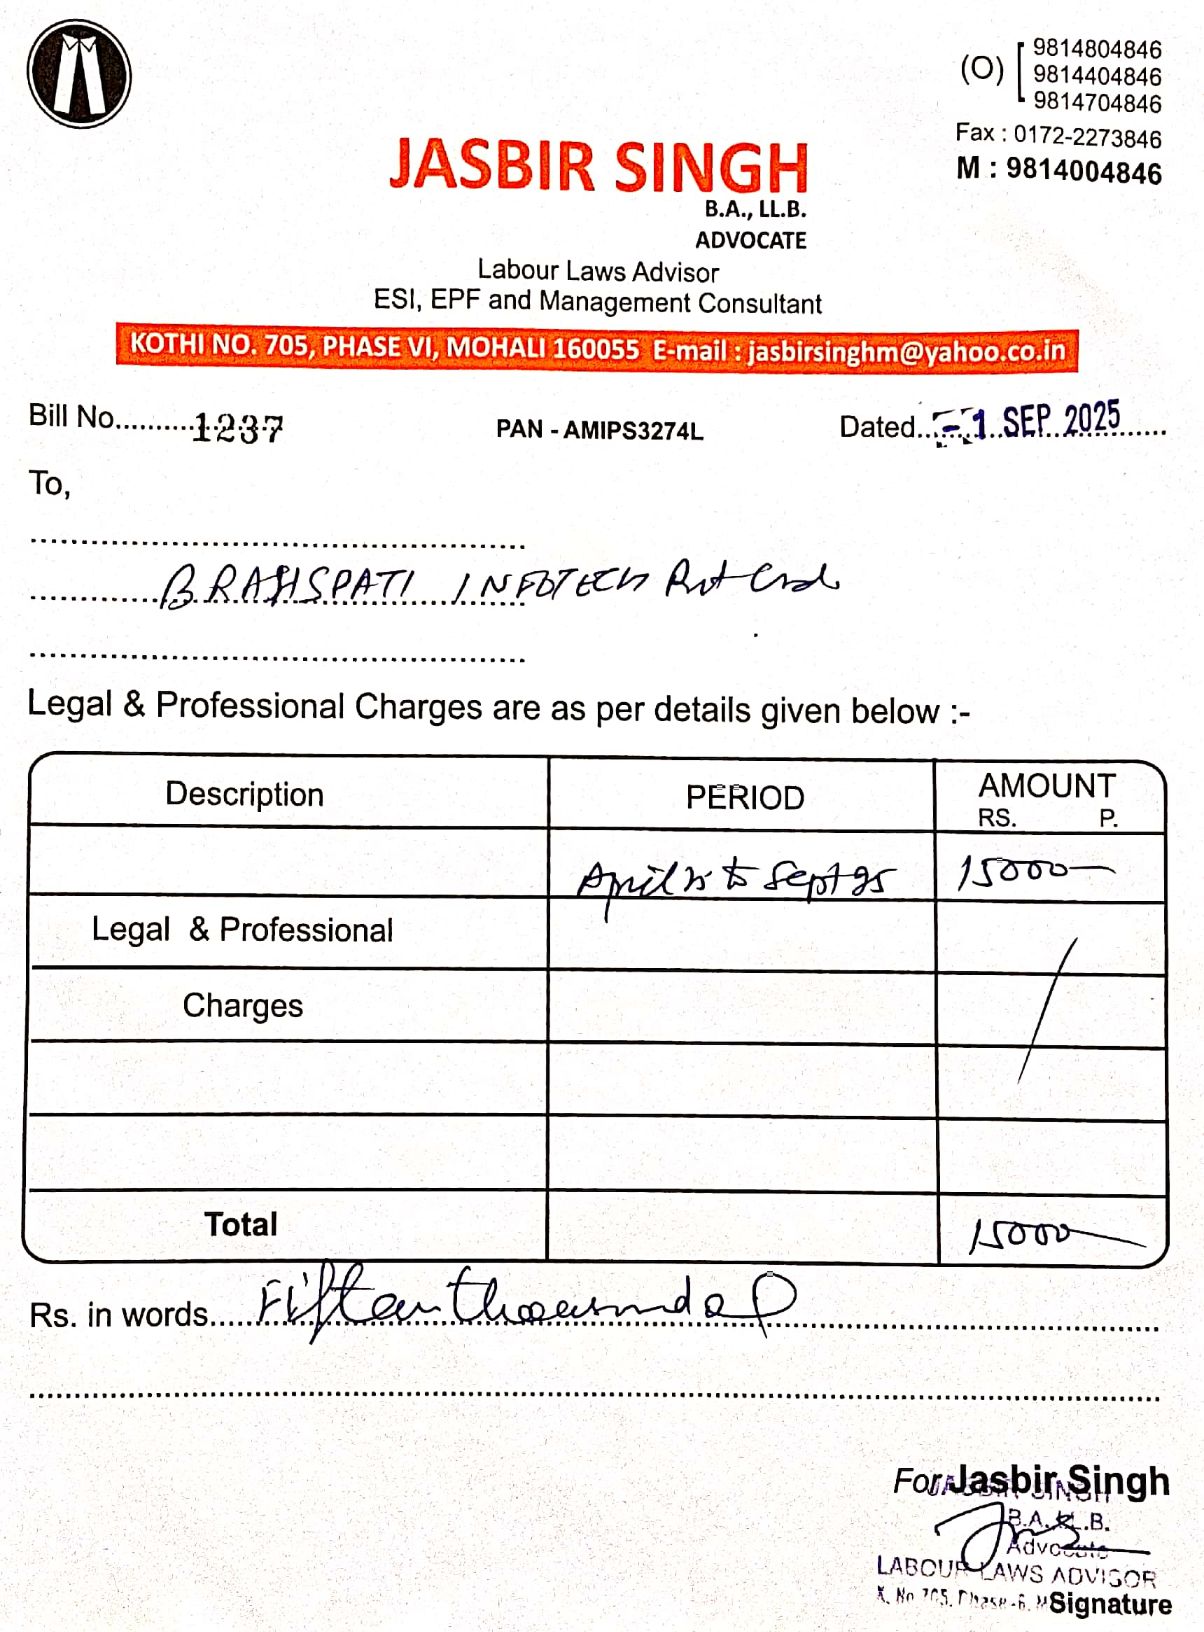 (O) 9814804846
9814404846
9814704846
Fax : 0172-2273846
M : 9814004846
JASBIR SINGH
B.A., LL.B.
ADVOCATE
Labour Laws Advisor
ESI, EPF and Management Consultant
KOTHI NO. 705, PHASE VI, MOHALI 160055 E-mail : jasbirsinghm@yahoo.co.in
Bill No..........1237 PAN - AMIPS3274L Dated.....-1 SEP 2025......
To,
BRAHSPATI INFOTECH Pvt
Legal & Professional Charges are as per details given below :-
Description PERIOD AMOUNT
RS. P.
April 25 to Sept 25 15000—
Legal & Professional
Charges
Total 15000—
Rs. in words..... Fifteen thousand
For Jasbir Singh
JASBIR SINGH
B.A. LL.B.
Advocate
LABOUR LAWS ADVISOR
K. No 705, Phase-6,
Signature